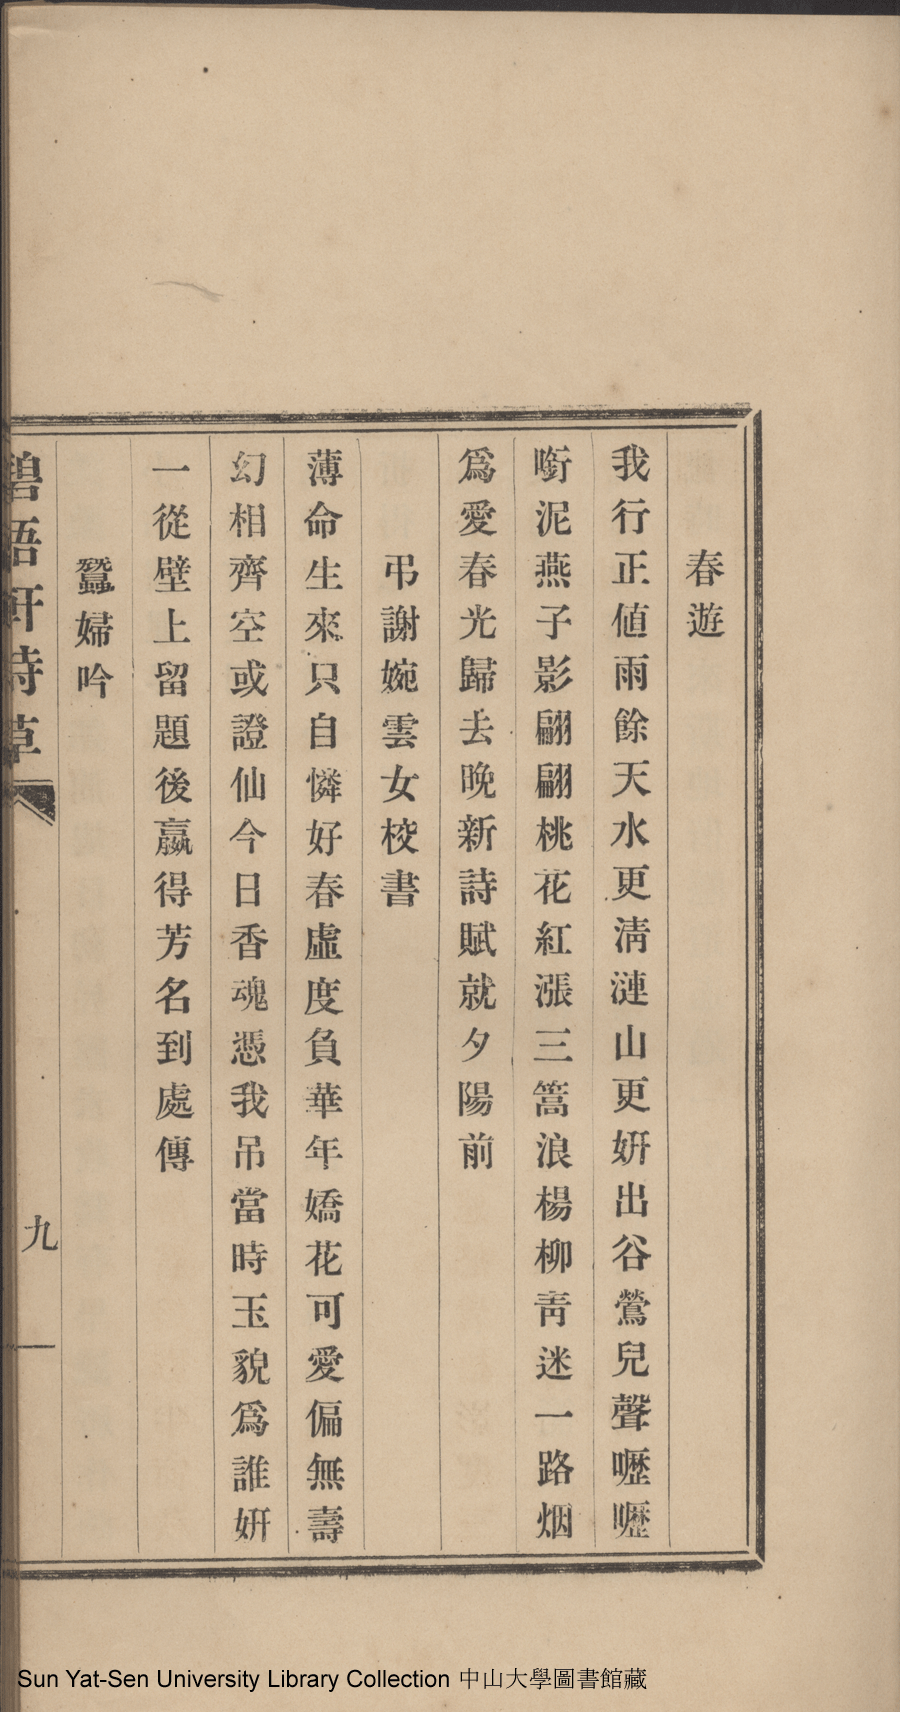 春遊
我行正値雨餘天水更淸漣山更姸出谷鶯兒聲嚦嚦
啣泥燕子影翩翩桃花紅漲三篙浪楊柳靑迷一路烟
爲愛春光歸去晚新詩賦就夕陽前
弔謝婉雲女校書
薄命生來只自憐好春虛度負華年嬌花可愛偏無壽
幻相齊空或證仙今日香魂憑我吊當時玉貌爲誰姸
一從壁上留題後嬴得芳名到處傳
蠶婦吟
碧梧軒詩草
九
Sun Yat-Sen University Library Collection 中山大學圖書館藏